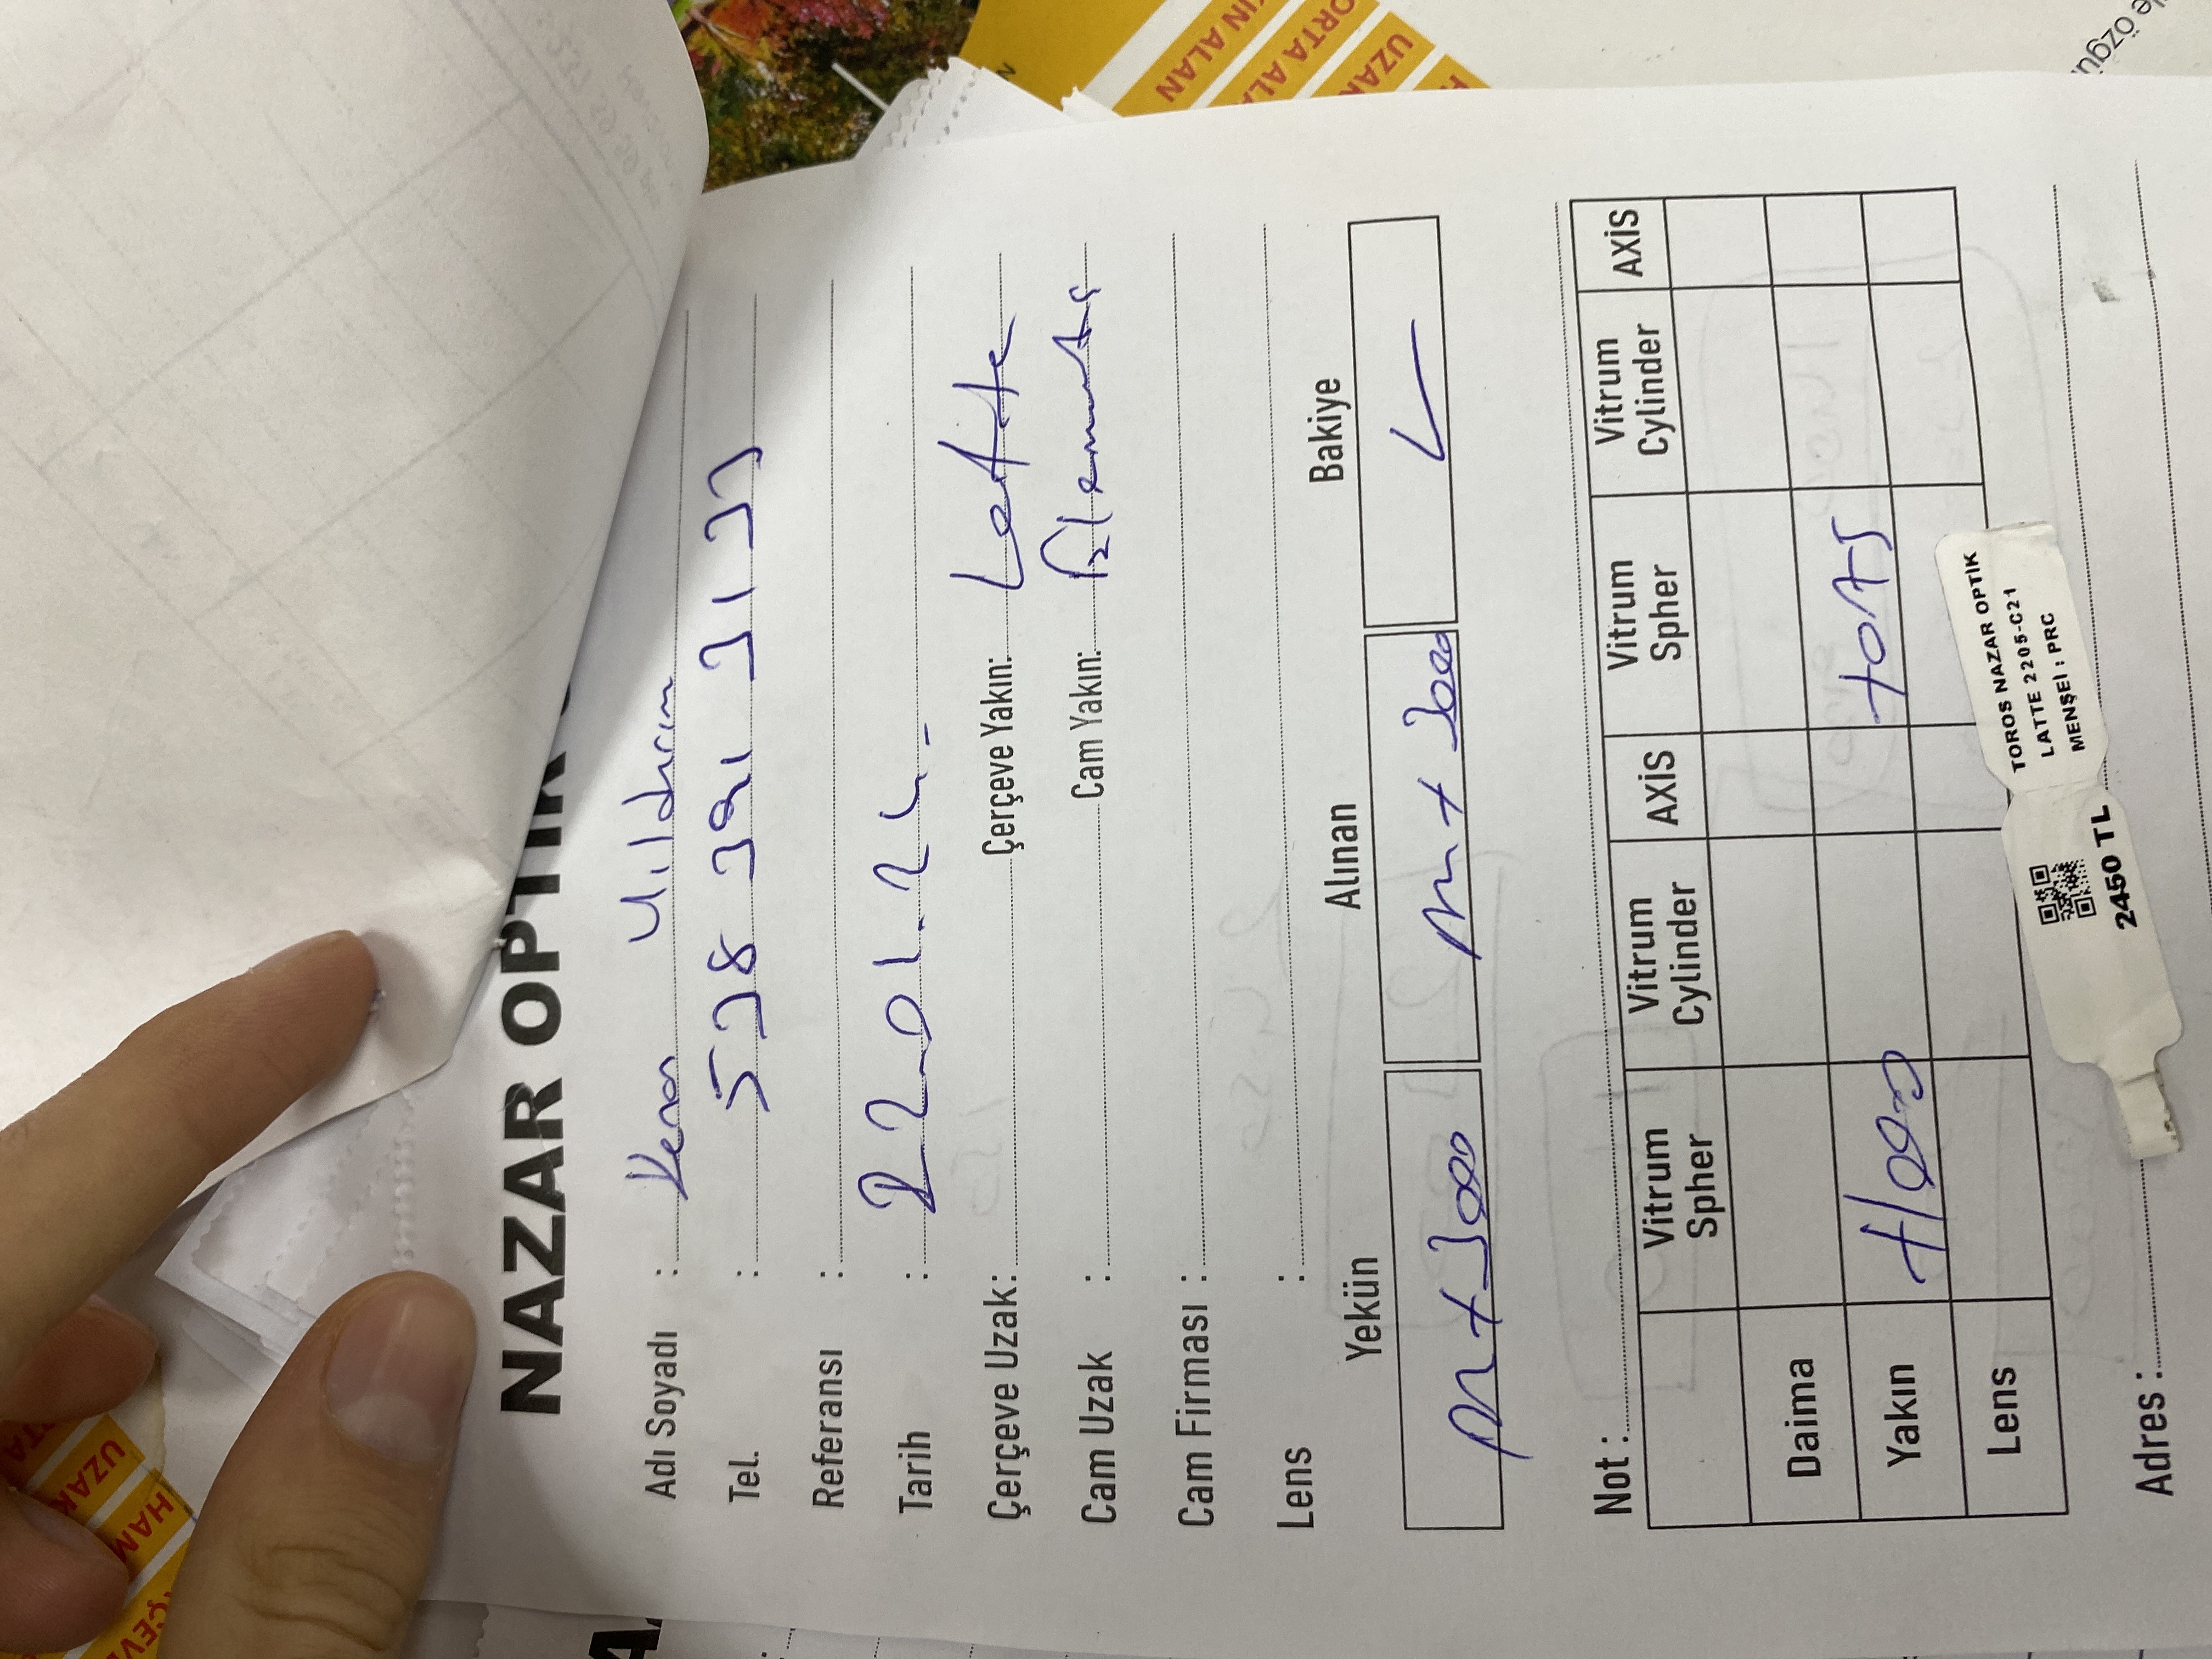 UZAK
HAM
NAZAR OPTİK
Adı Soyadı : Kenan Yıldırım
Tel. : 538 391 31 33
Referansı :
Tarih : 22.01.24.
Çerçeve Uzak: Çerçeve Yakın: Latte
Cam Uzak : Cam Yakın: Elementis
Cam Firması :
Lens :
Yekün Alınan Bakiye
m+3000 m+3000
Not :
Vitrum Spher Vitrum Cylinder AXİS Vitrum Spher Vitrum Cylinder AXİS
Daima
Yakın +1000 +075
Lens
TOROS NAZAR OPTİK
LATTE 2205-C21
MENŞEİ : PRC
2450 TL
Adres :
ALAN
ORTA
UZAK